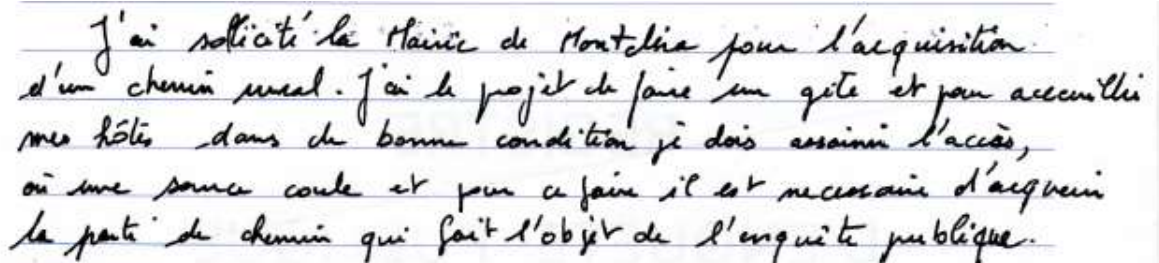 J'ai sollicité la Mairie de Montclus pour l'acquisition
d'un chemin rural. J'ai le projet de faire un gîte et pour acceuillir
mes hôtes dans de bonne condition je dois assainir l'accès,
où une source coule et pour ce faire il est necessaire d'acquerir
la partie de chemin qui fait l'objet de l'enquête publique.